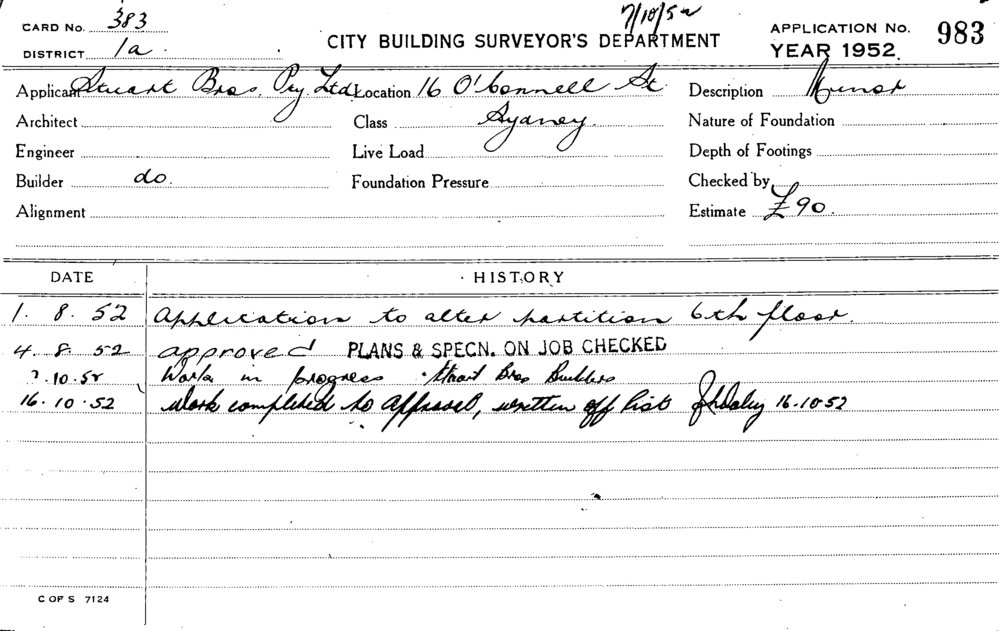 7/10/52
CARD No. 383
DISTRICT 1a
CITY BUILDING SURVEYOR'S DEPARTMENT
APPLICATION No. 983
YEAR 1952.
Applicant Stuart Bros. Pty Ltd. Location 16 O'Connell St. Description Minor
Architect Class Sydney. Nature of Foundation
Engineer Live Load Depth of Footings
Builder do. Foundation Pressure Checked by
Alignment Estimate £90.
DATE HISTORY
1. 8. 52 Application to alter partition 6th floor.
4. 8. 52 approved PLANS & SPECN. ON JOB CHECKED
.10.52 Work in progress Stuart Bros Builders
16.10.52 Work completed to approval, written off list 16.10.52
C OF S 7124